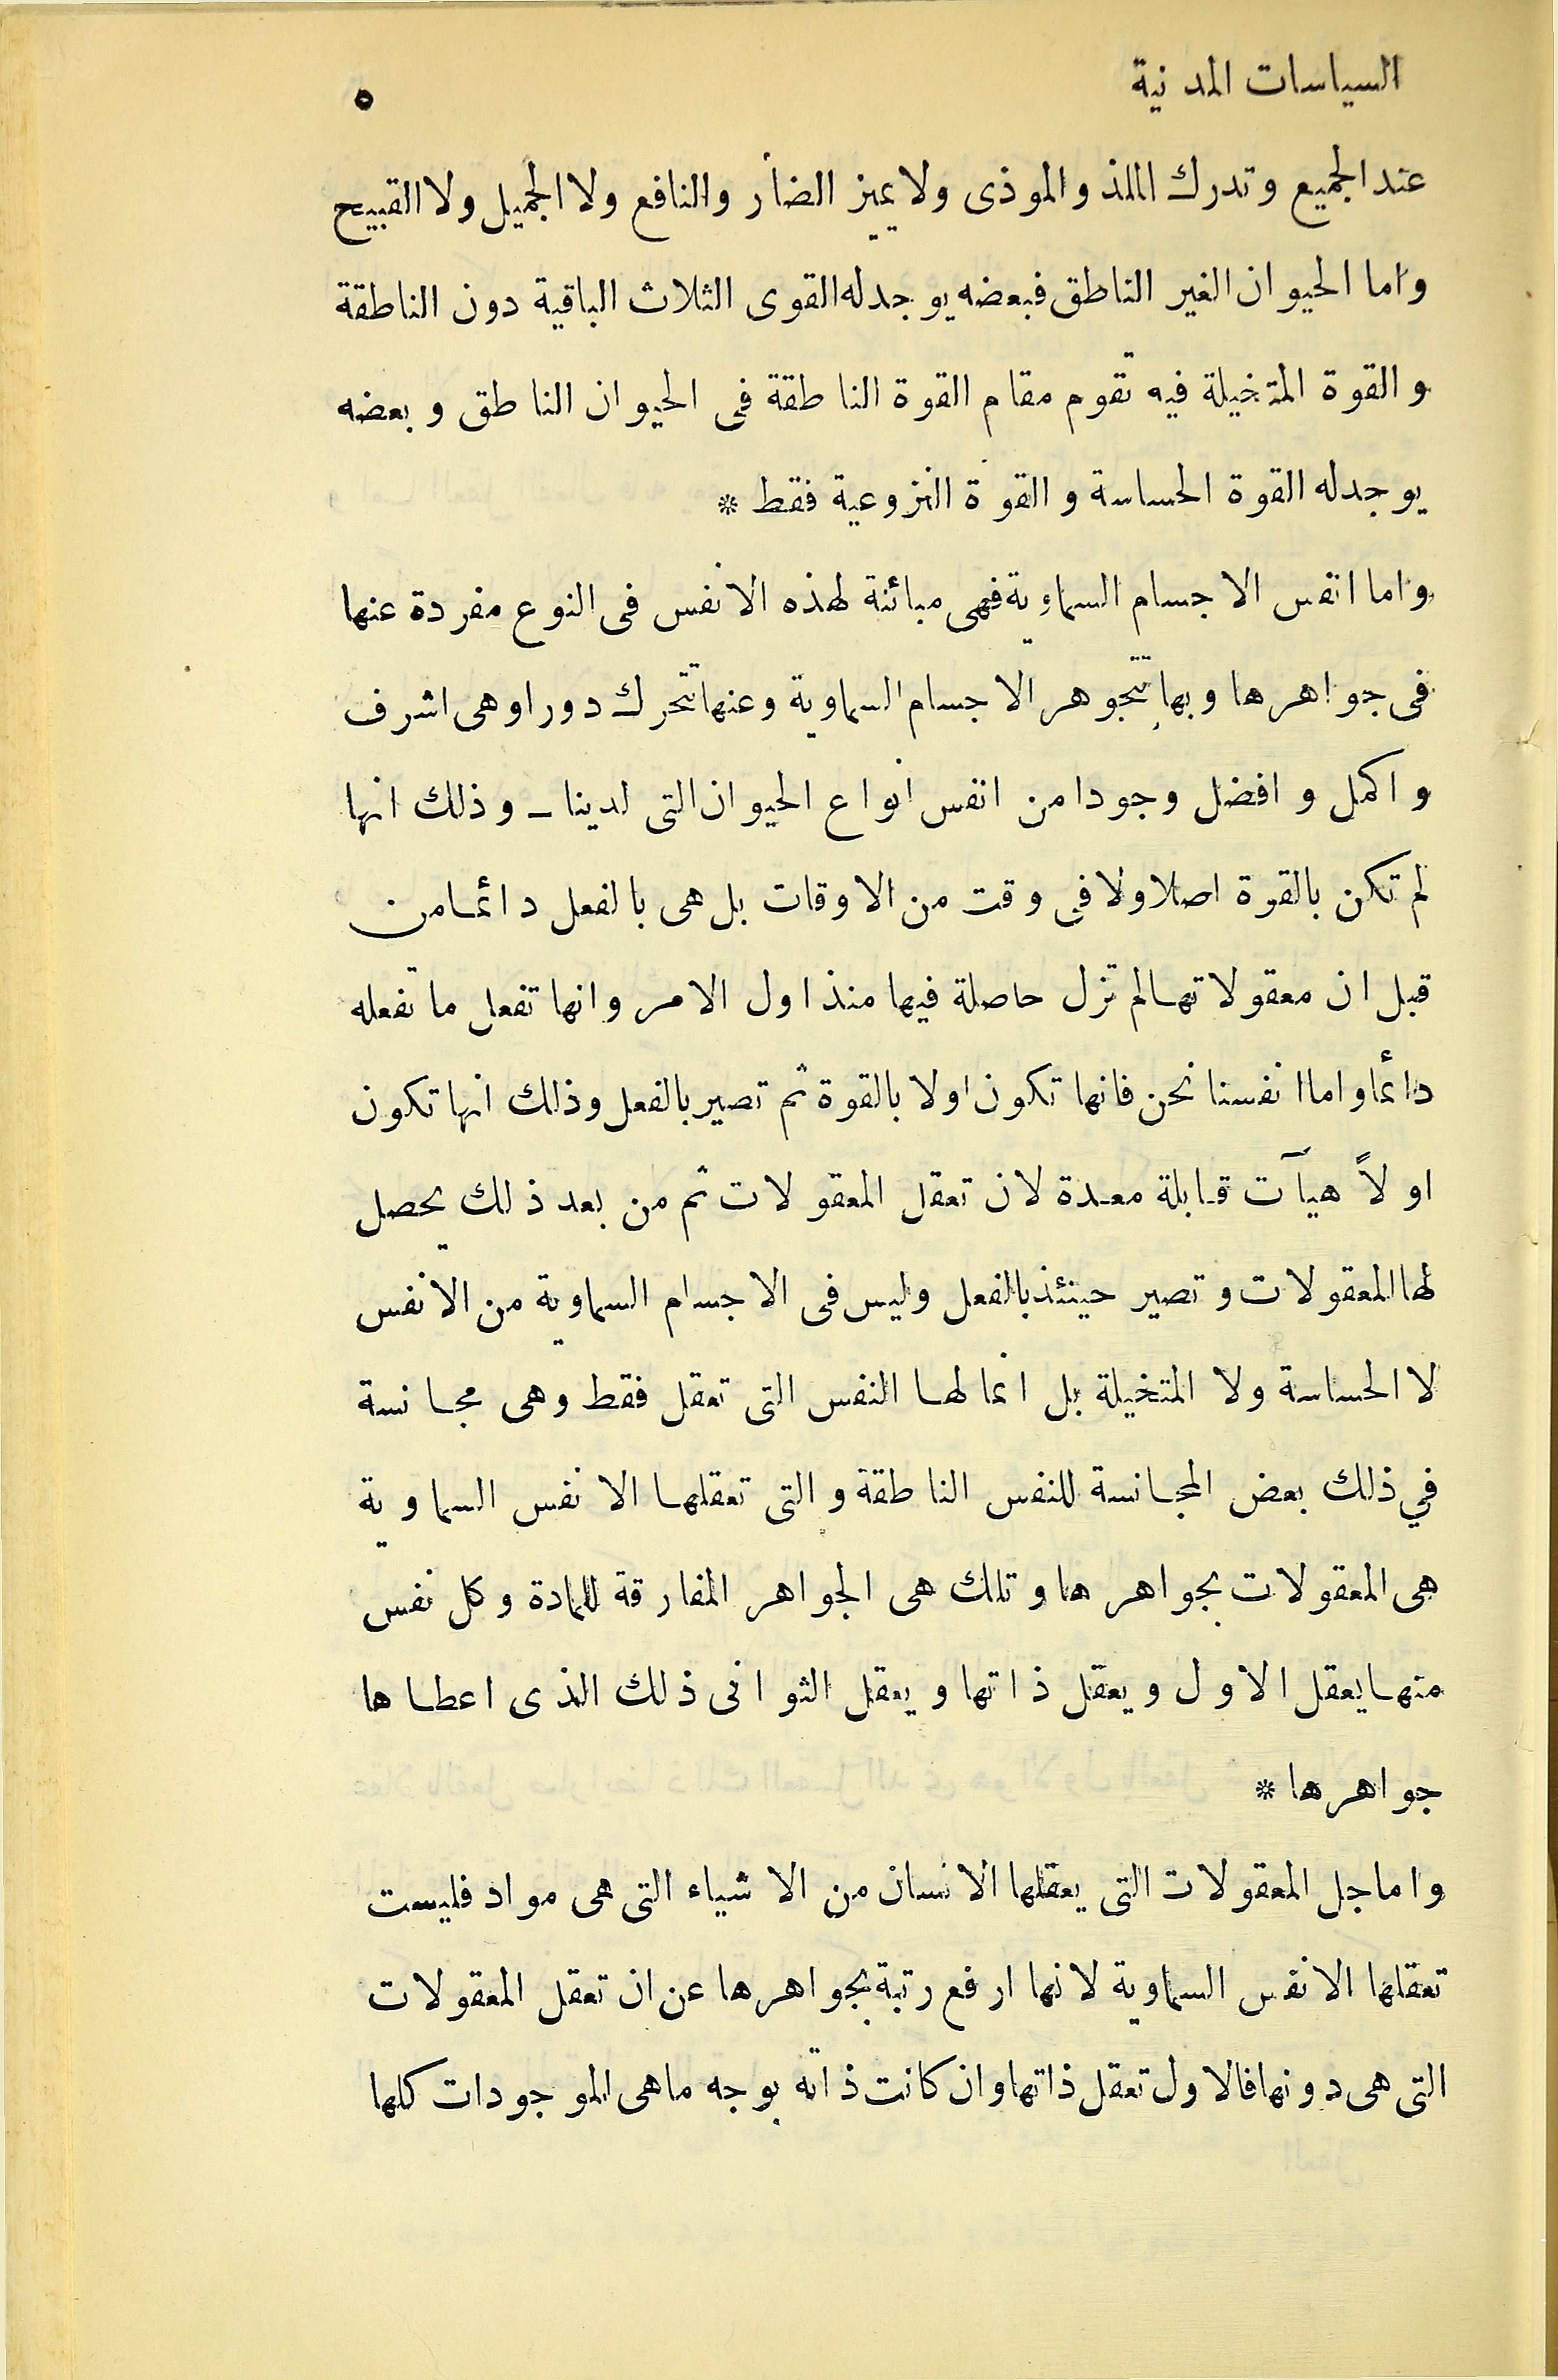 السياسات المدنية ٥
عند الجميع وتدرك الملذ والموذى ولا يميز الضار والنافع ولا الجميل ولا القبيح
واما الحيوان الغير الناطق فبعضه يوجد له القوى الثلاث الباقية دون الناطقة
والقوة المتخيلة فيه تقوم مقام القوة الناطقة فى الحيوان الناطق وبعضه
يوجد له القوة الحساسة والقوة النزوعية فقط *
واما انفس الاجسام السماوية فهى مبائنة لهذه الانفس فى النوع مفردة عنها
فى جواهرها وبها تتجوهر الاجسام السماوية وعنها تتحرك دورا وهى اشرف
واكمل وافضل وجودا من انفس انواع الحيوان التى لدينا ــ وذلك انها
لم تكن بالقوة اصلا ولا فى وقت من الاوقات بل هى بالفعل دائما من
قبل ان معقولاتها لم تزل حاصلة فيها منذ اول الامر وانها تفعل ما تفعله
دائما واما انفسنا نحن فانها تكون اولا بالقوة ثم تصير بالفعل وذلك انها تكون
اولاً هيآت قابلة معدة لان تعقل المعقولات ثم من بعد ذلك يحصل
لها المعقولات وتصير حينئذ بالفعل وليس فى الاجسام السماوية من الانفس
لا الحساسة ولا المتخيلة بل انما لها النفس التى تعقل فقط وهى مجانسة
في ذلك بعض المجانسة للنفس الناطقة والتى تعقلها الانفس السماوية
هى المعقولات بجواهرها وتلك هى الجواهر المفارقة للمادة وكل نفس
منها يعقل الاول ويعقل ذاتها ويعقل الثوانى ذلك الذى اعطاها
جواهرها *
واما جل المعقولات التى يعقلها الانسان من الاشياء التى هى مواد فليست
تعقلها الانفس السماوية لانها ارفع رتبة بجواهرها عن ان تعقل المعقولات
التى هى دونها فالاول تعقل ذاتها وان كانت ذاته بوجه ما هى الموجودات كلها